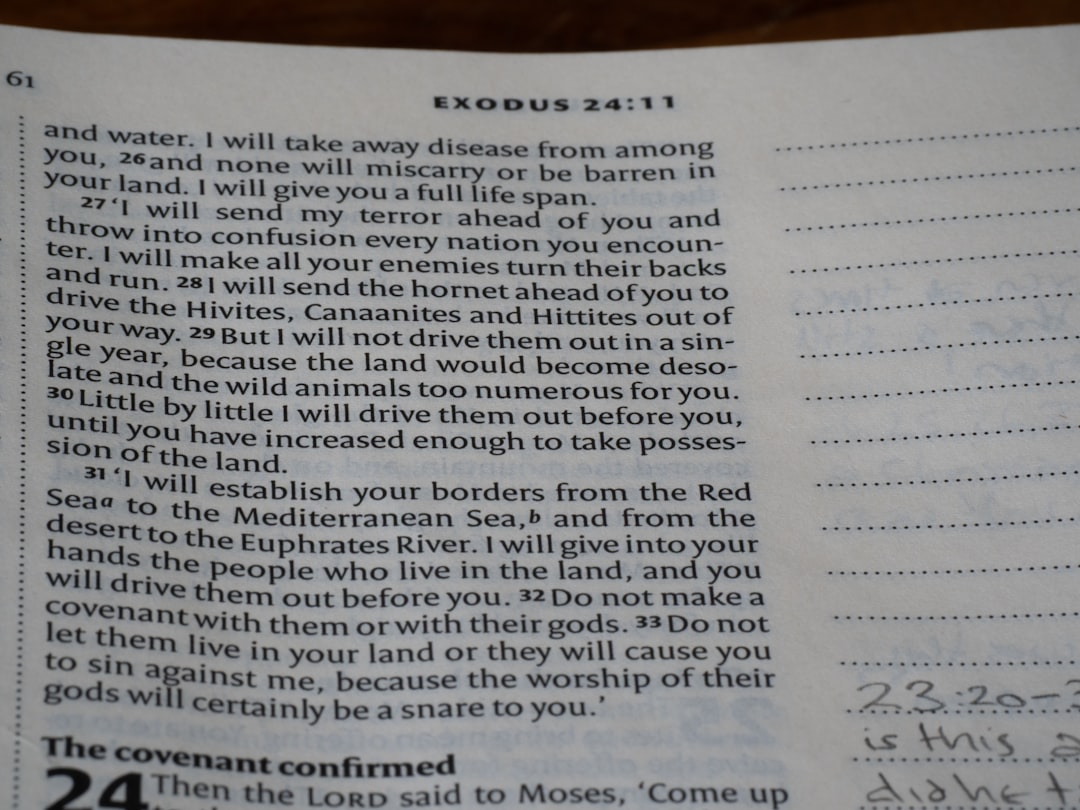 61
EXODUS 24:11
and water. I will take away disease from among
you, 26 and none will miscarry or be barren in
your land. I will give you a full life span.
27 ‘I will send my terror ahead of you and
throw into confusion every nation you encoun-
ter. I will make all your enemies turn their backs
and run. 28 I will send the hornet ahead of you to
drive the Hivites, Canaanites and Hittites out of
your way. 29 But I will not drive them out in a sin-
gle year, because the land would become deso-
late and the wild animals too numerous for you.
30 Little by little I will drive them out before you,
until you have increased enough to take posses-
sion of the land.
31 ‘I will establish your borders from the Red
Sea a to the Mediterranean Sea, b and from the
desert to the Euphrates River. I will give into your
hands the people who live in the land, and you
will drive them out before you. 32 Do not make a
covenant with them or with their gods. 33 Do not
let them live in your land or they will cause you
to sin against me, because the worship of their
gods will certainly be a snare to you.’
The covenant confirmed
24 Then the LORD said to Moses, ‘Come up
23:20-
is this